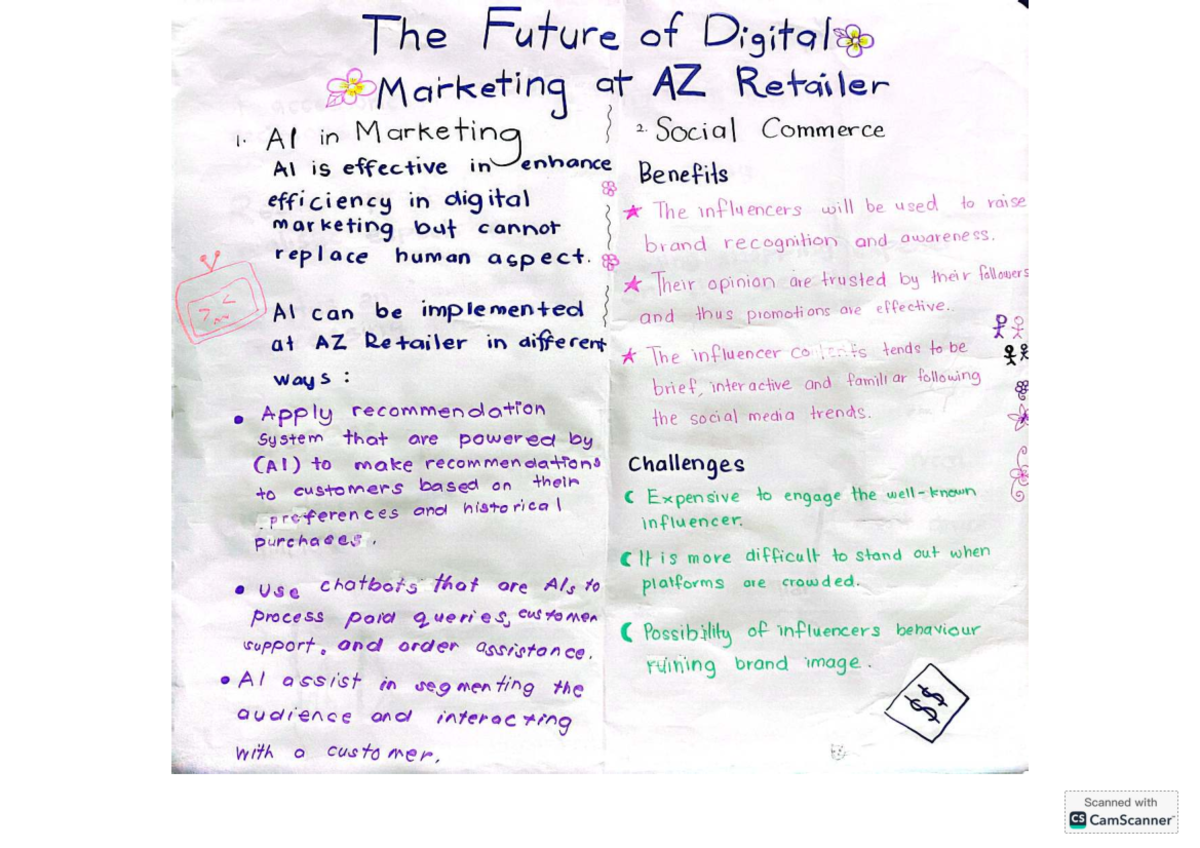 The Future of Digital
Marketing at AZ Retailer
1. AI in Marketing
AI is effective in enhance
efficiency in digital
marketing but cannot
replace human aspect.
AI can be implemented
at AZ Retailer in different
ways :
• Apply recommendation
system that are powered by
(AI) to make recommendations
to customers based on their
preferences and historical
purchases.
• Use chatbots that are AIs to
process paid queries, customer
support, and order assistance.
• AI assist in segmenting the
audience and interacting
with a customer.
2. Social Commerce
Benefits
★ The influencers will be used to raise
brand recognition and awareness.
★ Their opinion are trusted by their followers
and thus promotions are effective.
★ The influencer contents tends to be
brief, interactive and familiar following
the social media trends.
Challenges
Expensive to engage the well-known
influencer.
It is more difficult to stand out when
platforms are crowded.
Possibility of influencers behaviour
ruining brand image.
$$
Scanned with
CS CamScanner